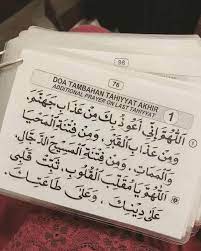 96
76
DOA TAMBAHAN TAHIYYAT AKHIR
ADDITIONAL PRAYER ON LAST TAHIYYAT
1
اَللّٰهُمَّ اِنِّى اَعُوْذُبِكَ مِنْ عَذَابِ جَهَنَّمَ،
وَمِنْ عَذَابِ الْقَبْرِ، وَمِنْ فِتْنَةِ الْمَحْيَا
وَالْمَمَاتِ، وَمِنْ فِتْنَةِ الْمَسِيْحِ الدَّجَّالِ.
اَللّٰهُمَّ يَا مُقَلِّبَ الْقُلُوْبِ، ثَبِّتْ قَلْبِى
عَلَى دِيْنِكَ، وَعَلَى طَاعَتِكَ.